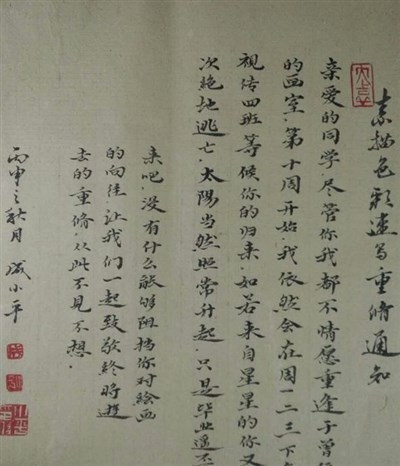 素描色彩速写重修通知
亲爱的同学,尽管你我都不情愿重逢于曾
的画室,第十周开始,我依然会在周一二三下
视传四班等候你的归来,如若来自星星的你又
次绝地逃亡,太阳当然照常升起,只是毕业遥不
来吧,没有什么能够阻挡你对绘画
的向往,让我们一起致敬终将逝
去的重修,从此不见不想.
丙申之秋月 成小平